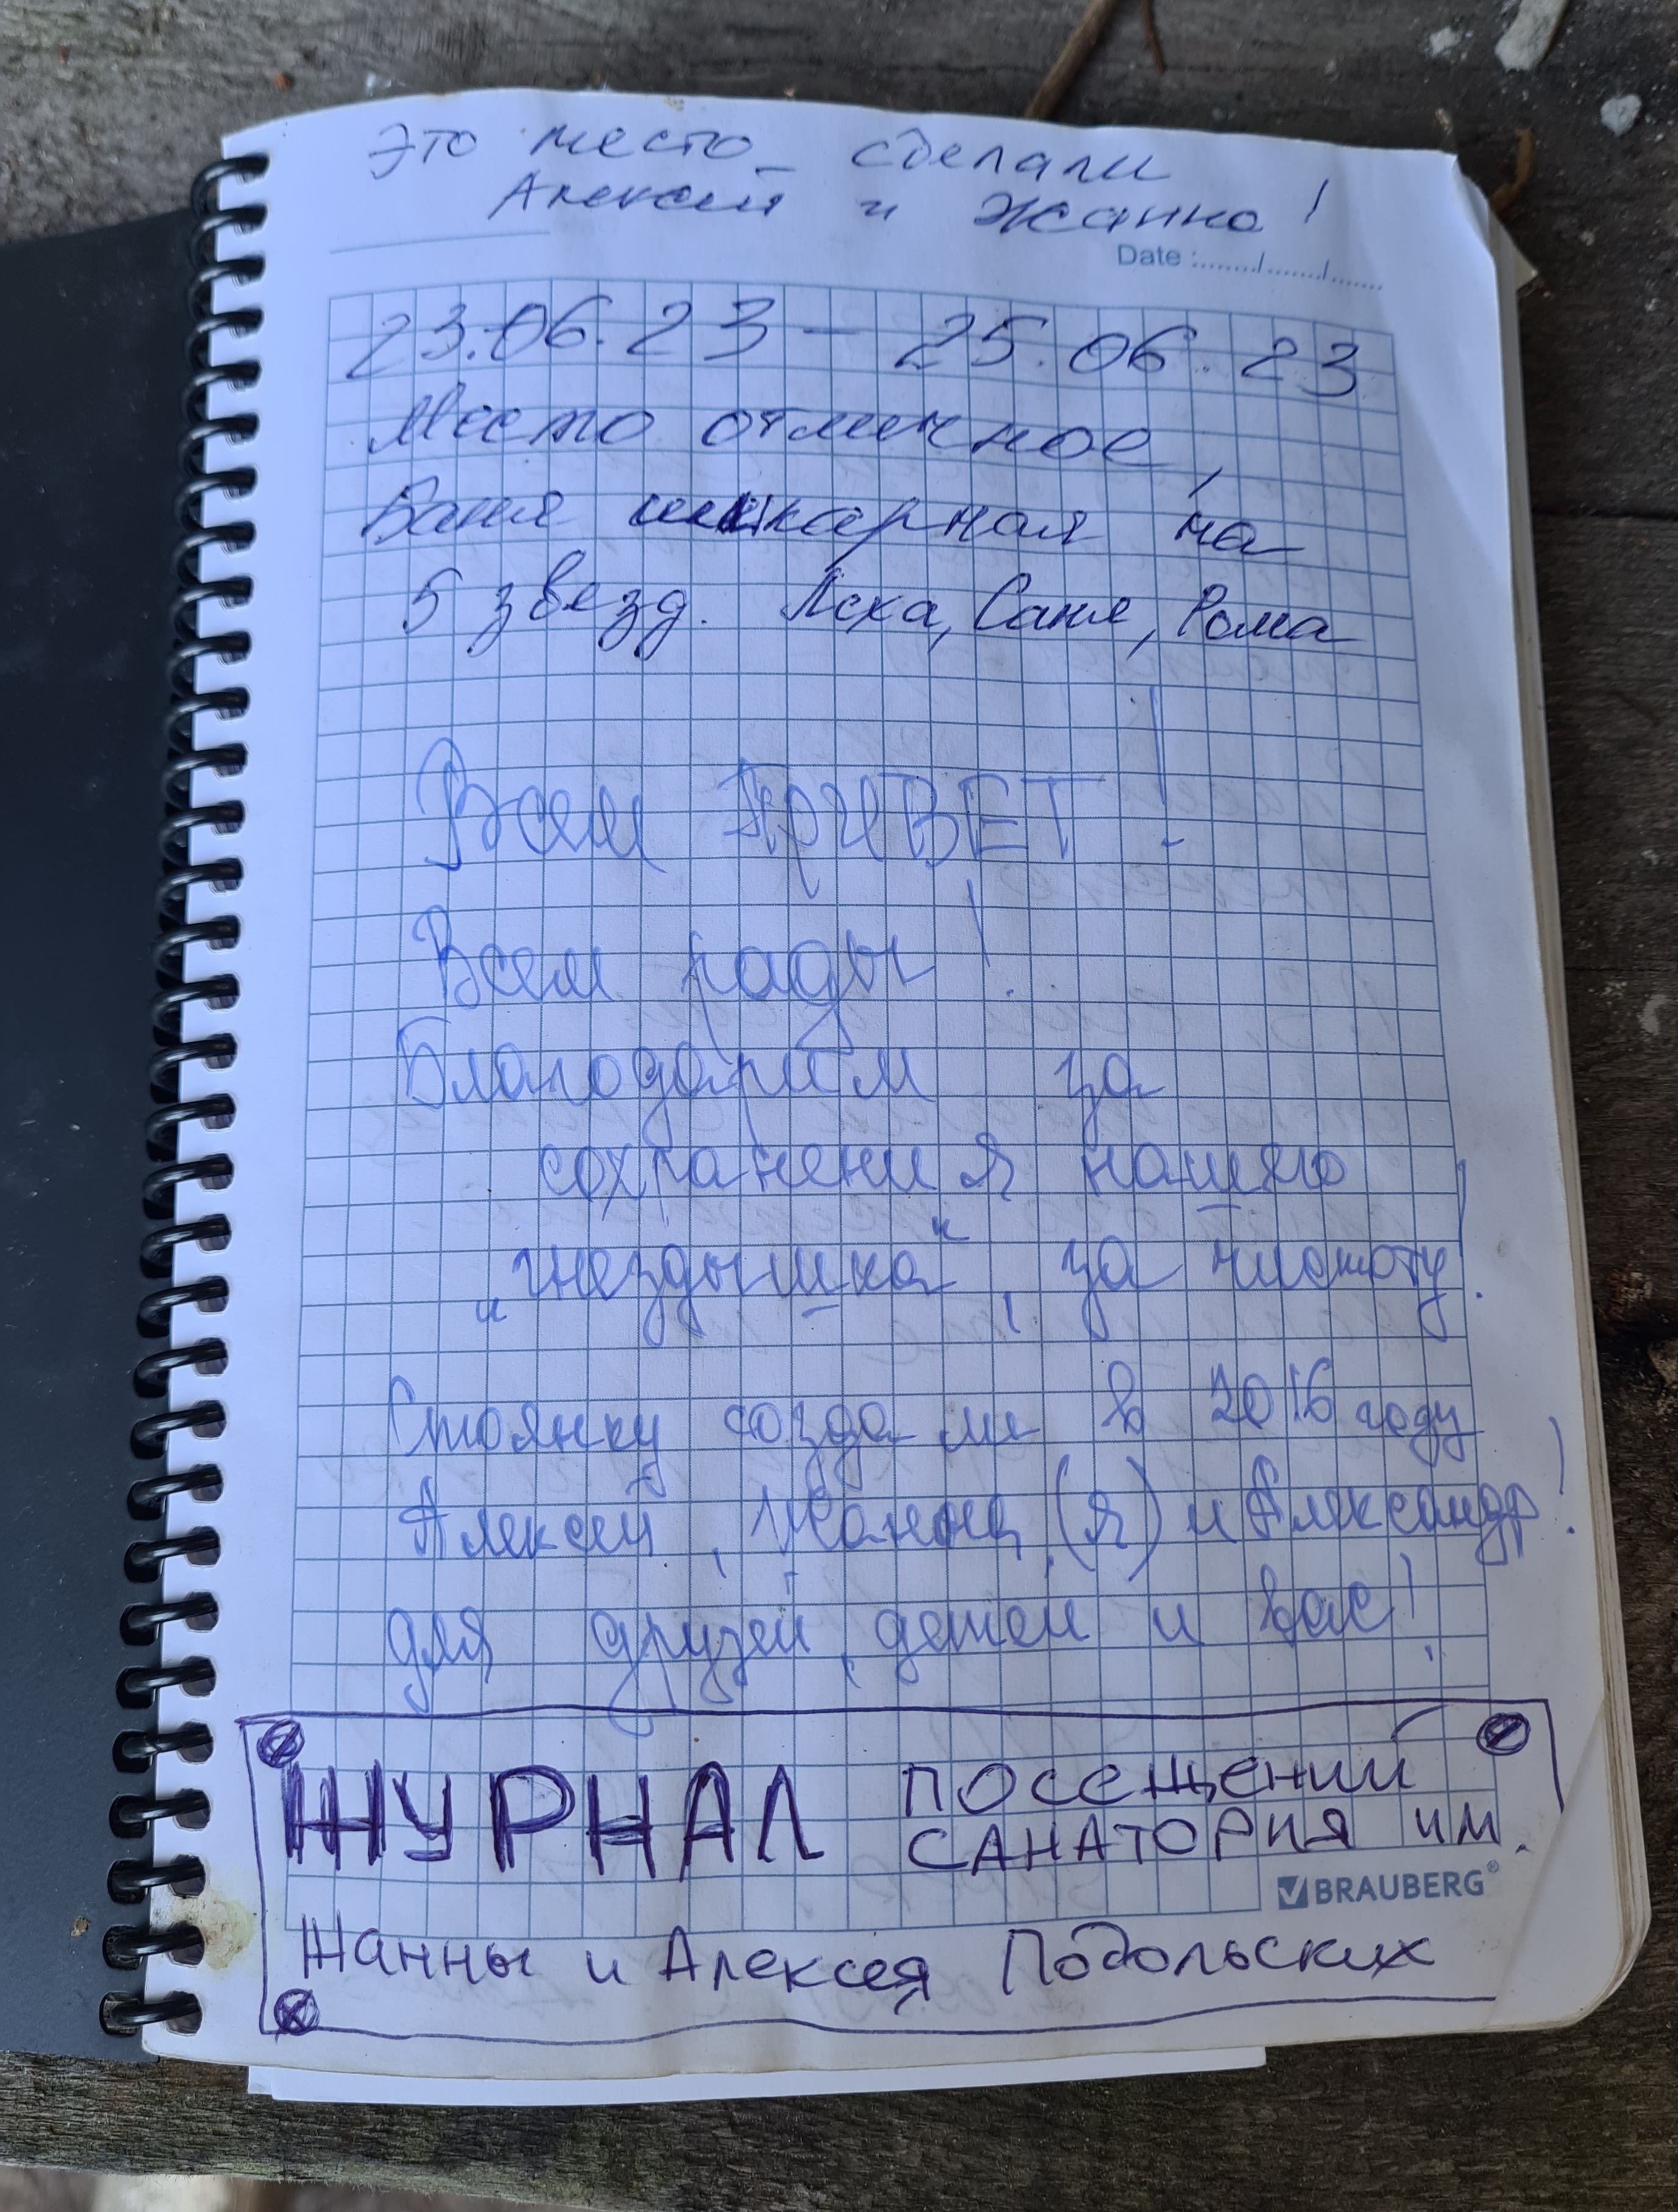 Это место сделали
Алексей и Жанна!
Date :......./......./.......
23.06.23 – 25.06.23
Место отличное,
Баня шикарная на
5 звезд. Леха, Саня, Рома
Всем ПРИВЕТ!
Всем рады!
Благодарим за
сохранения нашего
"гнездышка", за чистоту!
Стоянку создали в 2016 году
Алексей, Жанна (я) и Александр!
для друзей, детей и вас!
ЖУРНАЛ ПОСЕЩЕНИЙ
САНАТОРИЯ ИМ.
BRAUBERG®
Жанны и Алексея Подольских